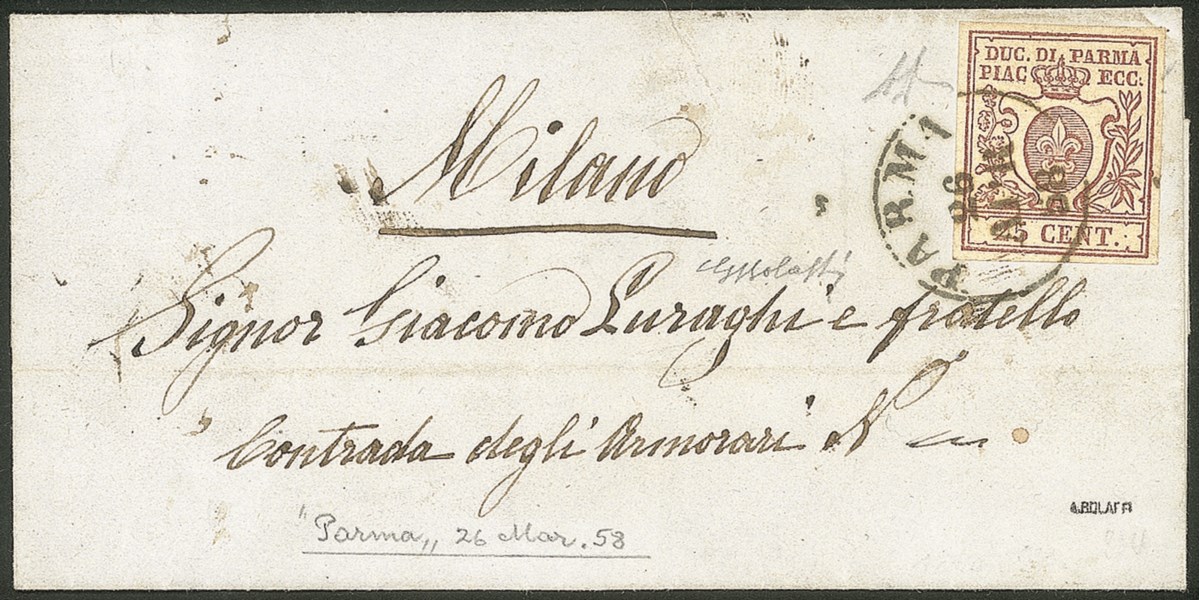 DUC. DI PARMA
PIAC ECC.
25 CENT.
PARMA
26
58
Milano
Signor Giacomo Luraghi e fratello
Contrada degli Armorari N
"Parma„ 26 Mar. 58
A.BOLAFFI